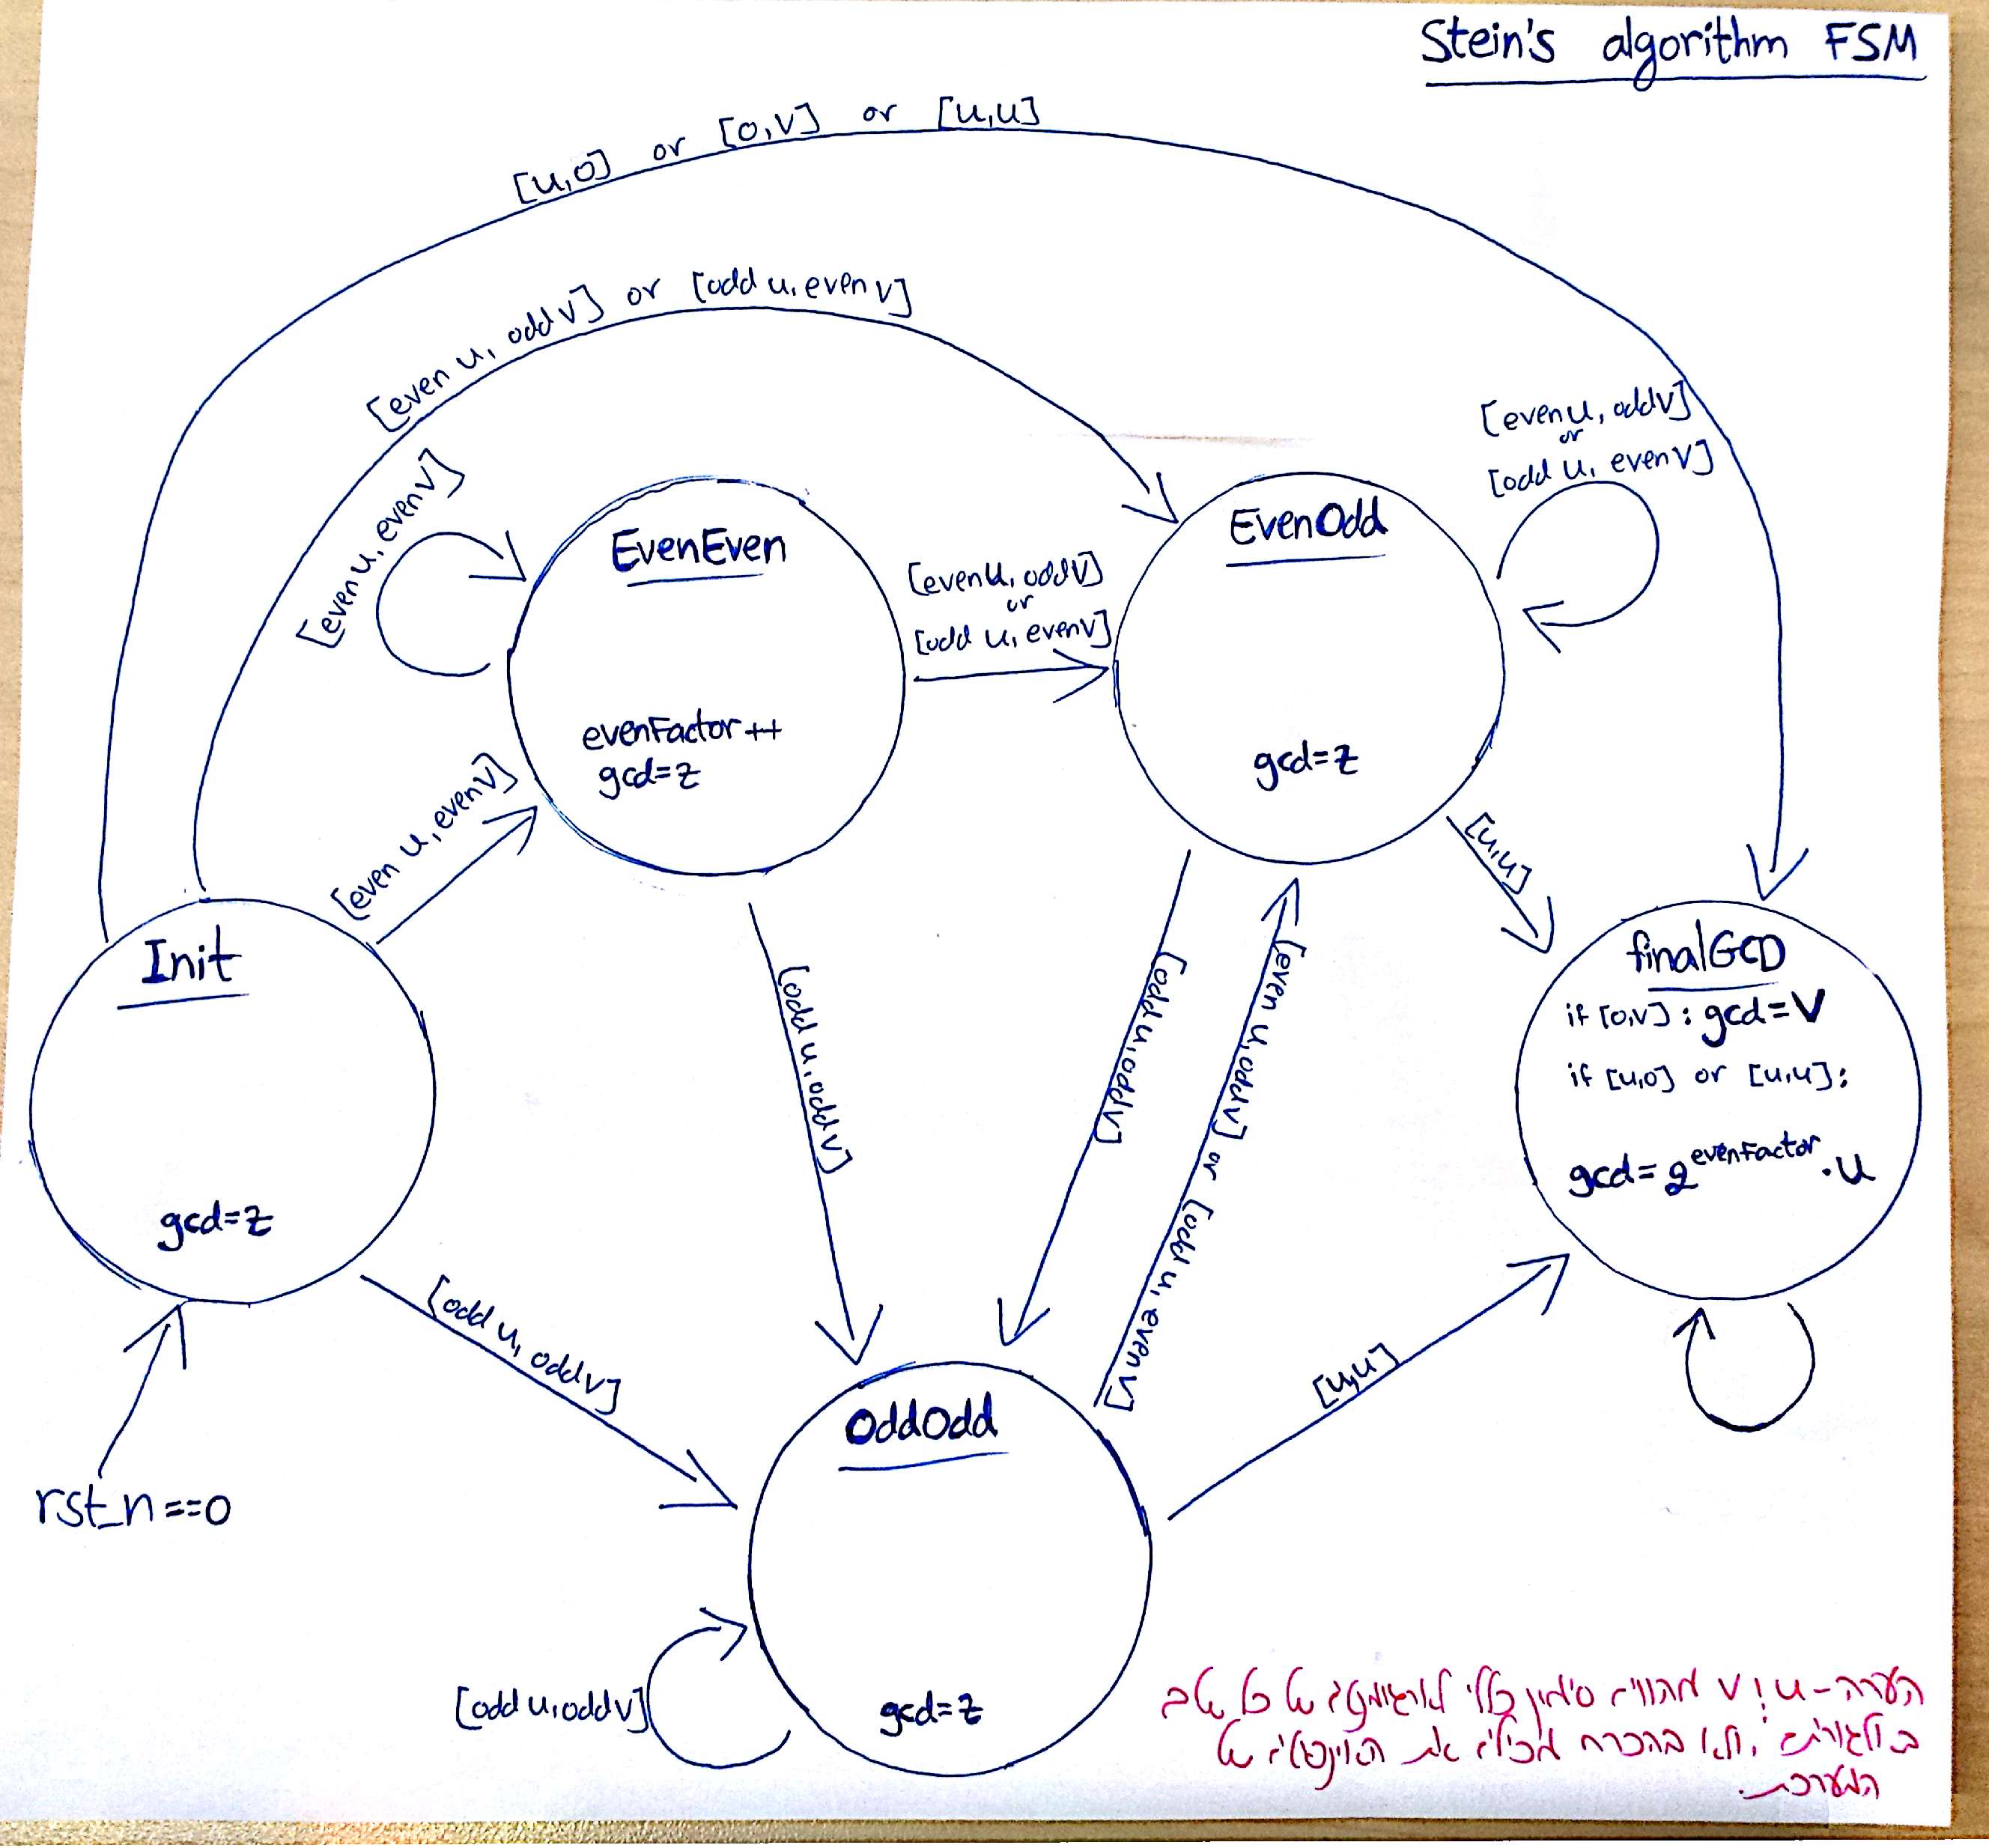 Stein's algorithm FSM
[u,0] or [0,v] or [u,u]
[even u, odd v] or [odd u, even v]
[even u, even v]
EvenEven
evenFactor++
gcd=z
[even u, odd v]
or
[odd u, even v]
EvenOdd
gcd=z
[even u, odd v]
or
[odd u, even v]
[even u, even v]
[u,u]
Init
gcd=z
rst_n==0
[odd u, odd v]
[odd u, odd v]
[odd u, odd v]
[even u, odd v] or [odd u, even v]
finalGCD
if [0,v]: gcd=v
if [u,0] or [u,u]:
gcd=2^evenFactor·u
[u,u]
OddOdd
gcd=z
[odd u, odd v]
הערה - u ו v מהווים סימון כללי לארגומנטים של כל שלב
באלגוריתם, ולאו בהכרח מכילים את האינפוטים של
המערכת.